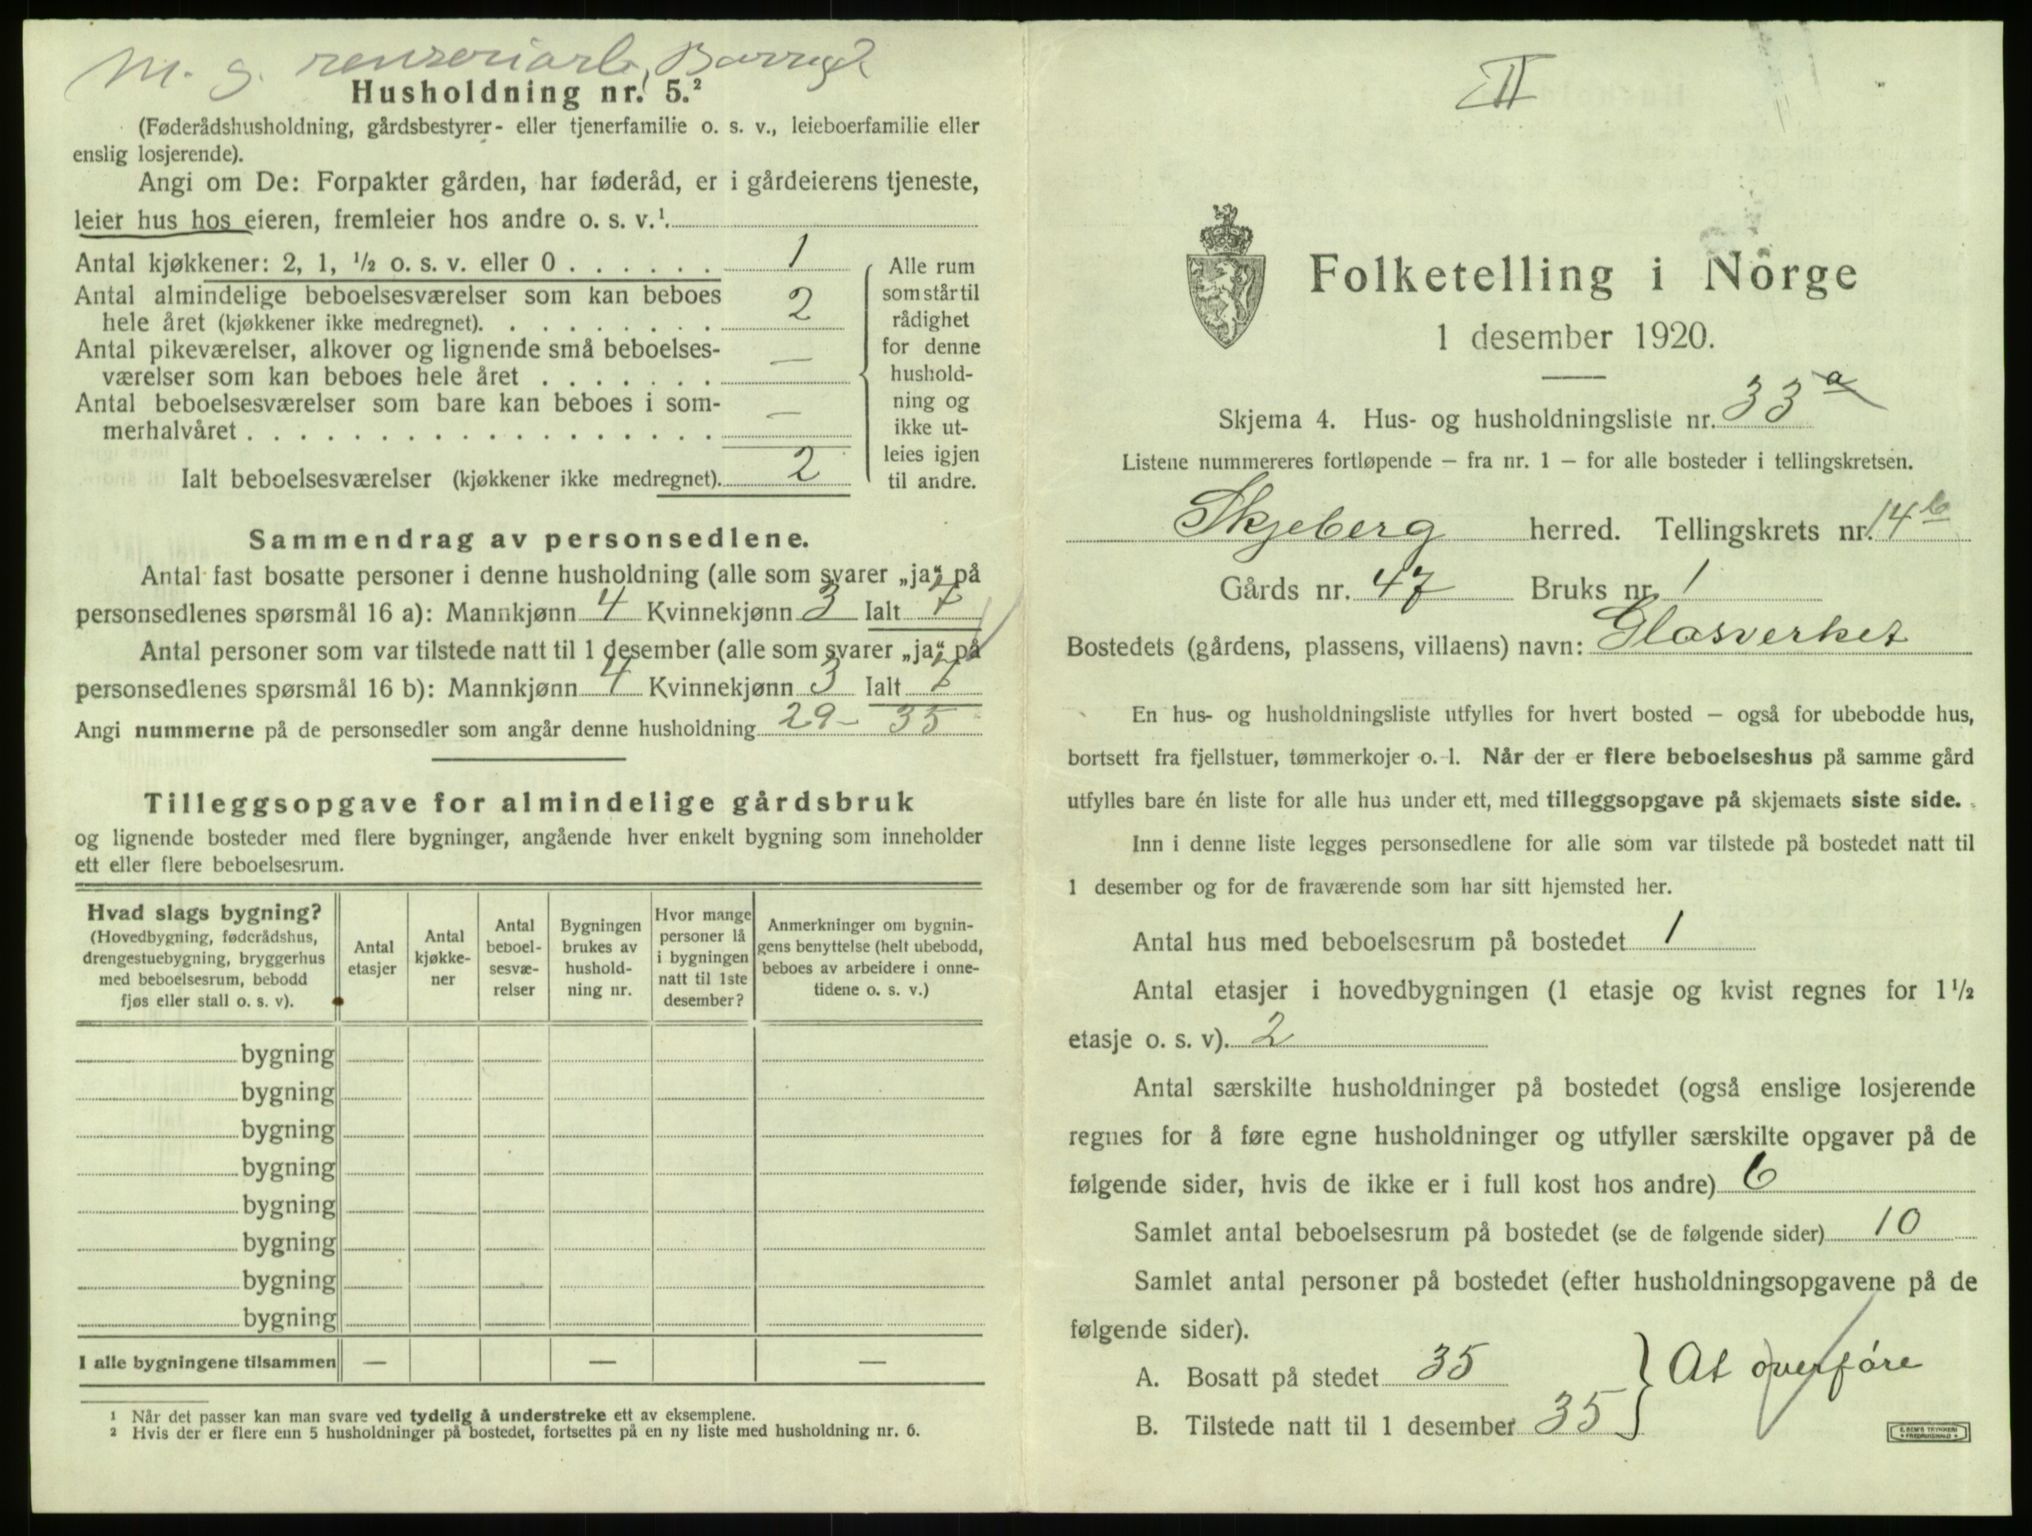 M. g. renseriarb. Borregd
Husholdning nr. 5.²
(Føderådshusholdning, gårdsbestyrer- eller tjenerfamilie o. s. v., leieboerfamilie eller
enslig losjerende).
Angi om De: Forpakter gården, har føderåd, er i gårdeierens tjeneste,
leier hus hos eieren, fremleier hos andre o. s. v.¹
Antal kjøkkener: 2, 1, ½ o. s. v. eller 0 . . . . . . 1
Antal almindelige beboelsesværelser som kan beboes
hele året (kjøkkener ikke medregnet). . . . . . . . . 2
Antal pikeværelser, alkover og lignende små beboelses-
værelser som kan beboes hele året . . . . . . . —
Antal beboelsesværelser som bare kan beboes i som-
merhalvåret . . . . . . . . . . . . . . . . . . —
Ialt beboelsesværelser (kjøkkener ikke medregnet). 2
Alle rum
som står til
rådighet
for denne
hushold-
ning og
ikke ut-
leies igjen
til andre.
Sammendrag av personsedlene.
Antal fast bosatte personer i denne husholdning (alle som svarer „ja“ på
personsedlenes spørsmål 16 a): Mannkjønn 4 Kvinnekjønn 3 Ialt 7
Antal personer som var tilstede natt til 1 desember (alle som svarer „ja“ på
personsedlenes spørsmål 16 b): Mannkjønn 4 Kvinnekjønn 3 Ialt 7
Angi nummerne på de personsedler som angår denne husholdning 29 – 35
Tilleggsopgave for almindelige gårdsbruk
og lignende bosteder med flere bygninger, angående hver enkelt bygning som inneholder
ett eller flere beboelsesrum.
Hvad slags bygning?
(Hovedbygning, føderådshus,
drengestuebygning, bryggerhus
med beboelsesrum, bebodd
fjøs eller stall o. s. v).
Antal
etasjer
Antal
kjøkke-
ner
Antal
beboel-
sesvæ-
relser
Bygningen
brukes av
hushold-
ning nr.
Hvor mange
personer lå
i bygningen
natt til 1ste
desember?
Anmerkninger om bygnin-
gens benyttelse (helt ubebodd,
beboes av arbeidere i onne-
tidene o. s. v.)
bygning
bygning
bygning
bygning
bygning
bygning
bygning
bygning
I alle bygningene tilsammen — — —
¹ Når det passer kan man svare ved tydelig å understreke ett av eksemplene.
² Hvis der er flere enn 5 husholdninger på bostedet, fortsettes på en ny liste med husholdning nr. 6.
II
Folketelling i Norge
1 desember 1920.
Skjema 4. Hus- og husholdningsliste nr. 33 a
Listene nummereres fortløpende — fra nr. 1 — for alle bosteder i tellingskretsen.
Skjeberg herred. Tellingskrets nr. 14 b
Gårds nr. 47 Bruks nr. 1
Bostedets (gårdens, plassens, villaens) navn: Glasverket
En hus- og husholdningsliste utfylles for hvert bosted — også for ubebodde hus,
bortsett fra fjellstuer, tømmerkojer o. l. Når der er flere beboelseshus på samme gård
utfylles bare én liste for alle hus under ett, med tilleggsopgave på skjemaets siste side.
Inn i denne liste legges personsedlene for alle som var tilstede på bostedet natt til
1 desember og for de fraværende som har sitt hjemsted her.
Antal hus med beboelsesrum på bostedet 1
Antal etasjer i hovedbygningen (1 etasje og kvist regnes for 1½
etasje o. s. v). 2
Antal særskilte husholdninger på bostedet (også enslige losjerende
regnes for å føre egne husholdninger og utfyller særskilte opgaver på de
følgende sider, hvis de ikke er i full kost hos andre) 6
Samlet antal beboelsesrum på bostedet (se de følgende sider) 10
Samlet antal personer på bostedet (efter husholdningsopgavene på de
følgende sider).
A. Bosatt på stedet 35
B. Tilstede natt til 1 desember 35
At overføre
E. SEM'S TRYKKERI
FREDRIKSHALD